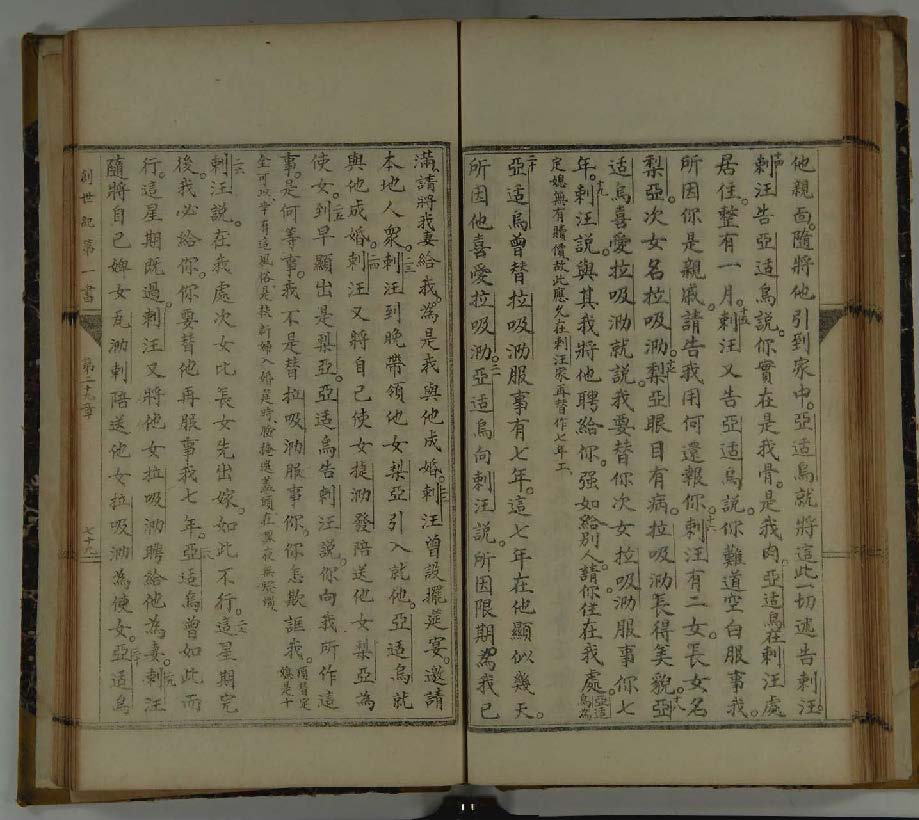 他親面。隨將他引到家中。亞适烏就將這此一切述告剌汪。
十四剌汪告亞适烏說。你實在是我骨。是我肉。亞适烏在剌汪處
居住。整有一月。十五剌汪又告亞适烏說。你難道空白服事我。
所因你是親戚。請告我用何還報你。十六剌汪有二女。長女名
梨亞。次女名拉吸泐。十七梨亞眼目有病。拉吸泐長得美貌。十八亞
适烏喜愛拉吸泐就說。我要替你次女拉吸泐服事你七
年。十九剌汪說。與其我將他聘給你。強如給別人。請你住在我處。亞适烏為
定媳無有聘價故此應久在剌汪家再替作七年工
二十亞适烏曾替拉吸泐服事有七年。這七年在他顯似幾天。
所因他喜愛拉吸泐。二一亞适烏向剌汪說。所因限期。為我已
滿。請將我妻給我。為是我與他成婚。二二剌汪曾設擺莚宴。邀請
本地人衆。二三剌汪到晚帶領他女梨亞引入就他。亞适烏就
與他成婚。二四剌汪又將自己使女捷泐發陪送他女梨亞為
使女。二五到早顯出是梨亞。亞适烏告剌汪說。你向我所作這
事。是何等事。我不是替拉吸泐服事你。你怎欺誆我。
二六剌汪說。在我處次女比長女先出嫁。如此不行。二七這星期完
後。我必給你。你要替他再服事我七年。二八亞适烏曾如此而
行。這星期既過。剌汪又將他女拉吸泐聘給他為妻。二九剌汪
隨將自己婢女瓦泐剌陪送他女拉吸泐為使女。三十亞适烏
創世紀第一書
第二十九章
七十九